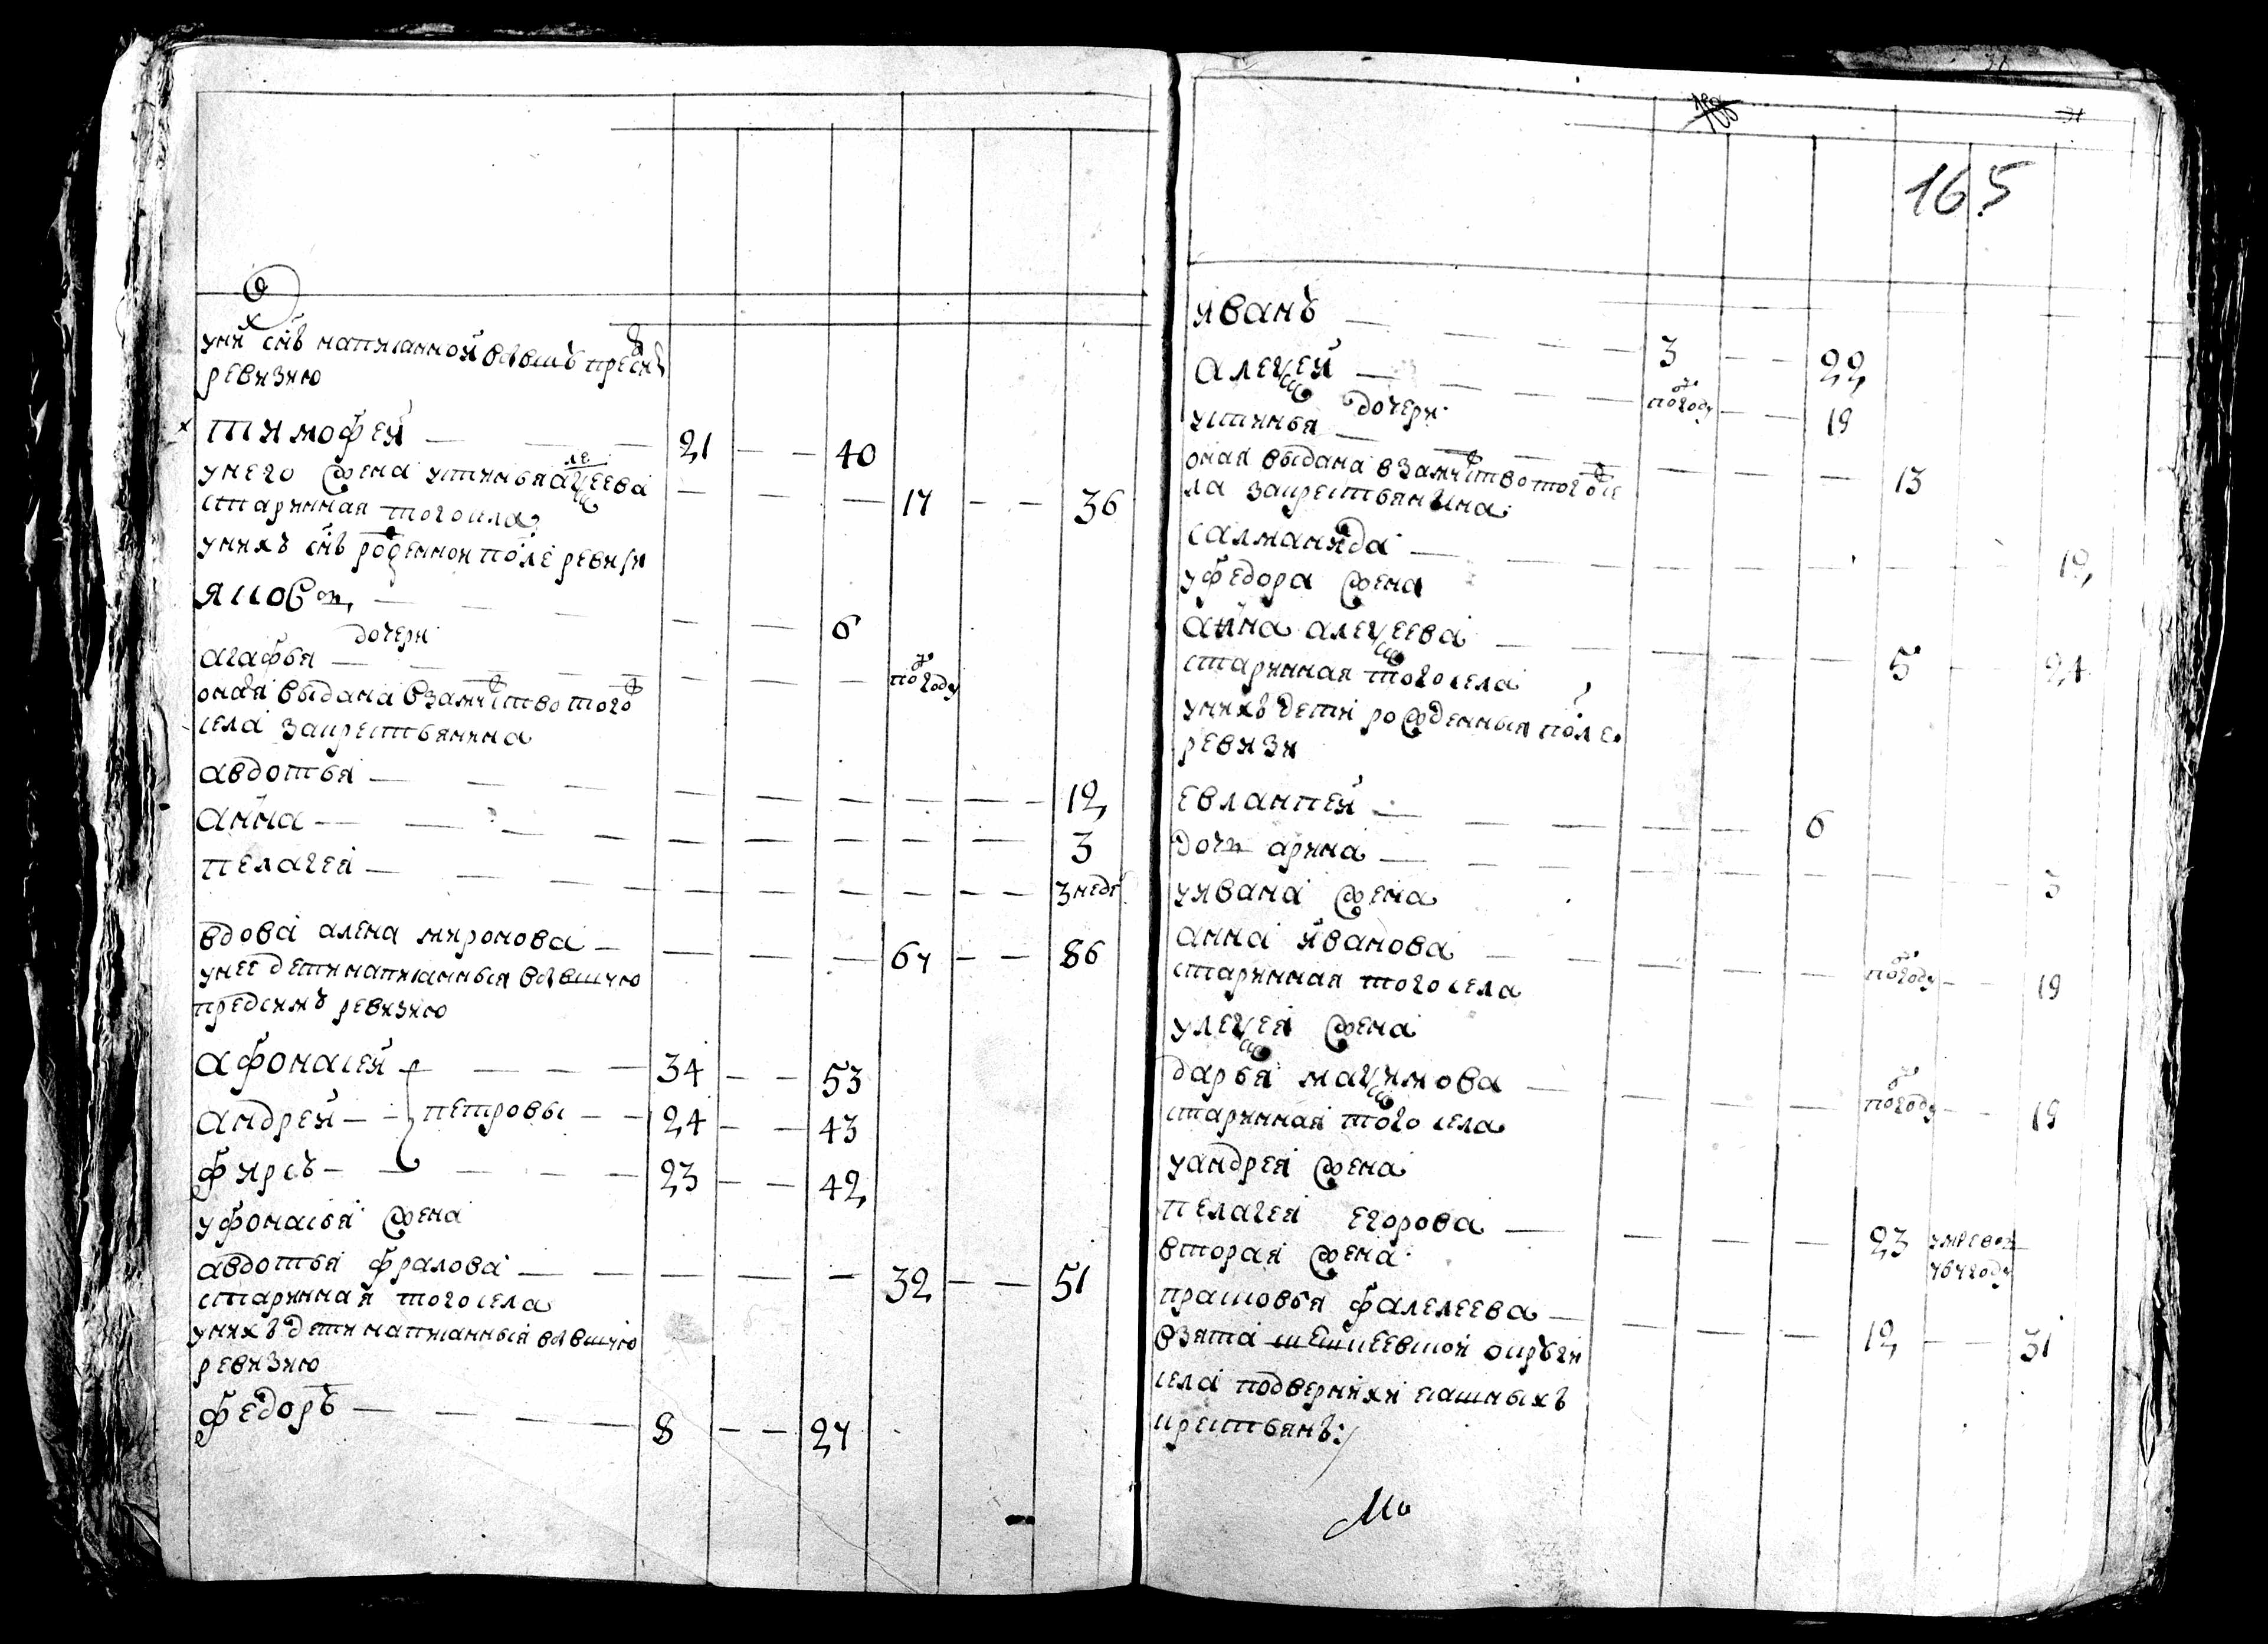 у них снъ написанной въ бывшъ пред симъ
ревизию
Тимофей — — — 21 — — 40
у него жена устинья алексеева — — — 17 — — 36
старинная того села
у них снъ рожденной после ревизи
Яков — — — 6
дочери
агафья — — — по году
оная выдана в замужство того
села за крестьянина
авдотья — — — 12
анна — — — 3
пелагея — — — 3 неде
вдова алена миронова — — — 67 — — 86
у нее дети написанныя в бывшую
пред симъ ревизию
афонасей — — — 34 — — 53
андрей — петровы — 24 — — 43
фирсъ — — — 23 — — 42
у фонасья жена
авдотья фралова — — — 32 — — 51
старинная того села
у них дети написанныя в бывшую
ревизию
федоръ — — — 8 — — 27
165
Иванъ — — — 3 — — 22
алексей — — — по году — — 19
дочери
устинья — — — 13
оная выдана в замужство того се
ла за крестьянина
саломанида — — — 12
у федора жена
анна алексеева — — — 5 — — 24
старинная того села
у них дети рожденныя после
ревизи
евлампей — — — 6
дочь арина — — — 3
у ивана жена
анна иванова — — — по году — — 19
старинная того села
у лексея жена
дарья максимова — — — по году — — 19
старинная того села
у андрея жена
пелагея егорова — — — 23 умре в 767 году
вторая жена
прасковья фалелеева — — — 12 — — 31
взята округи
села подвернихи ясашныхъ
крестьянъ:/